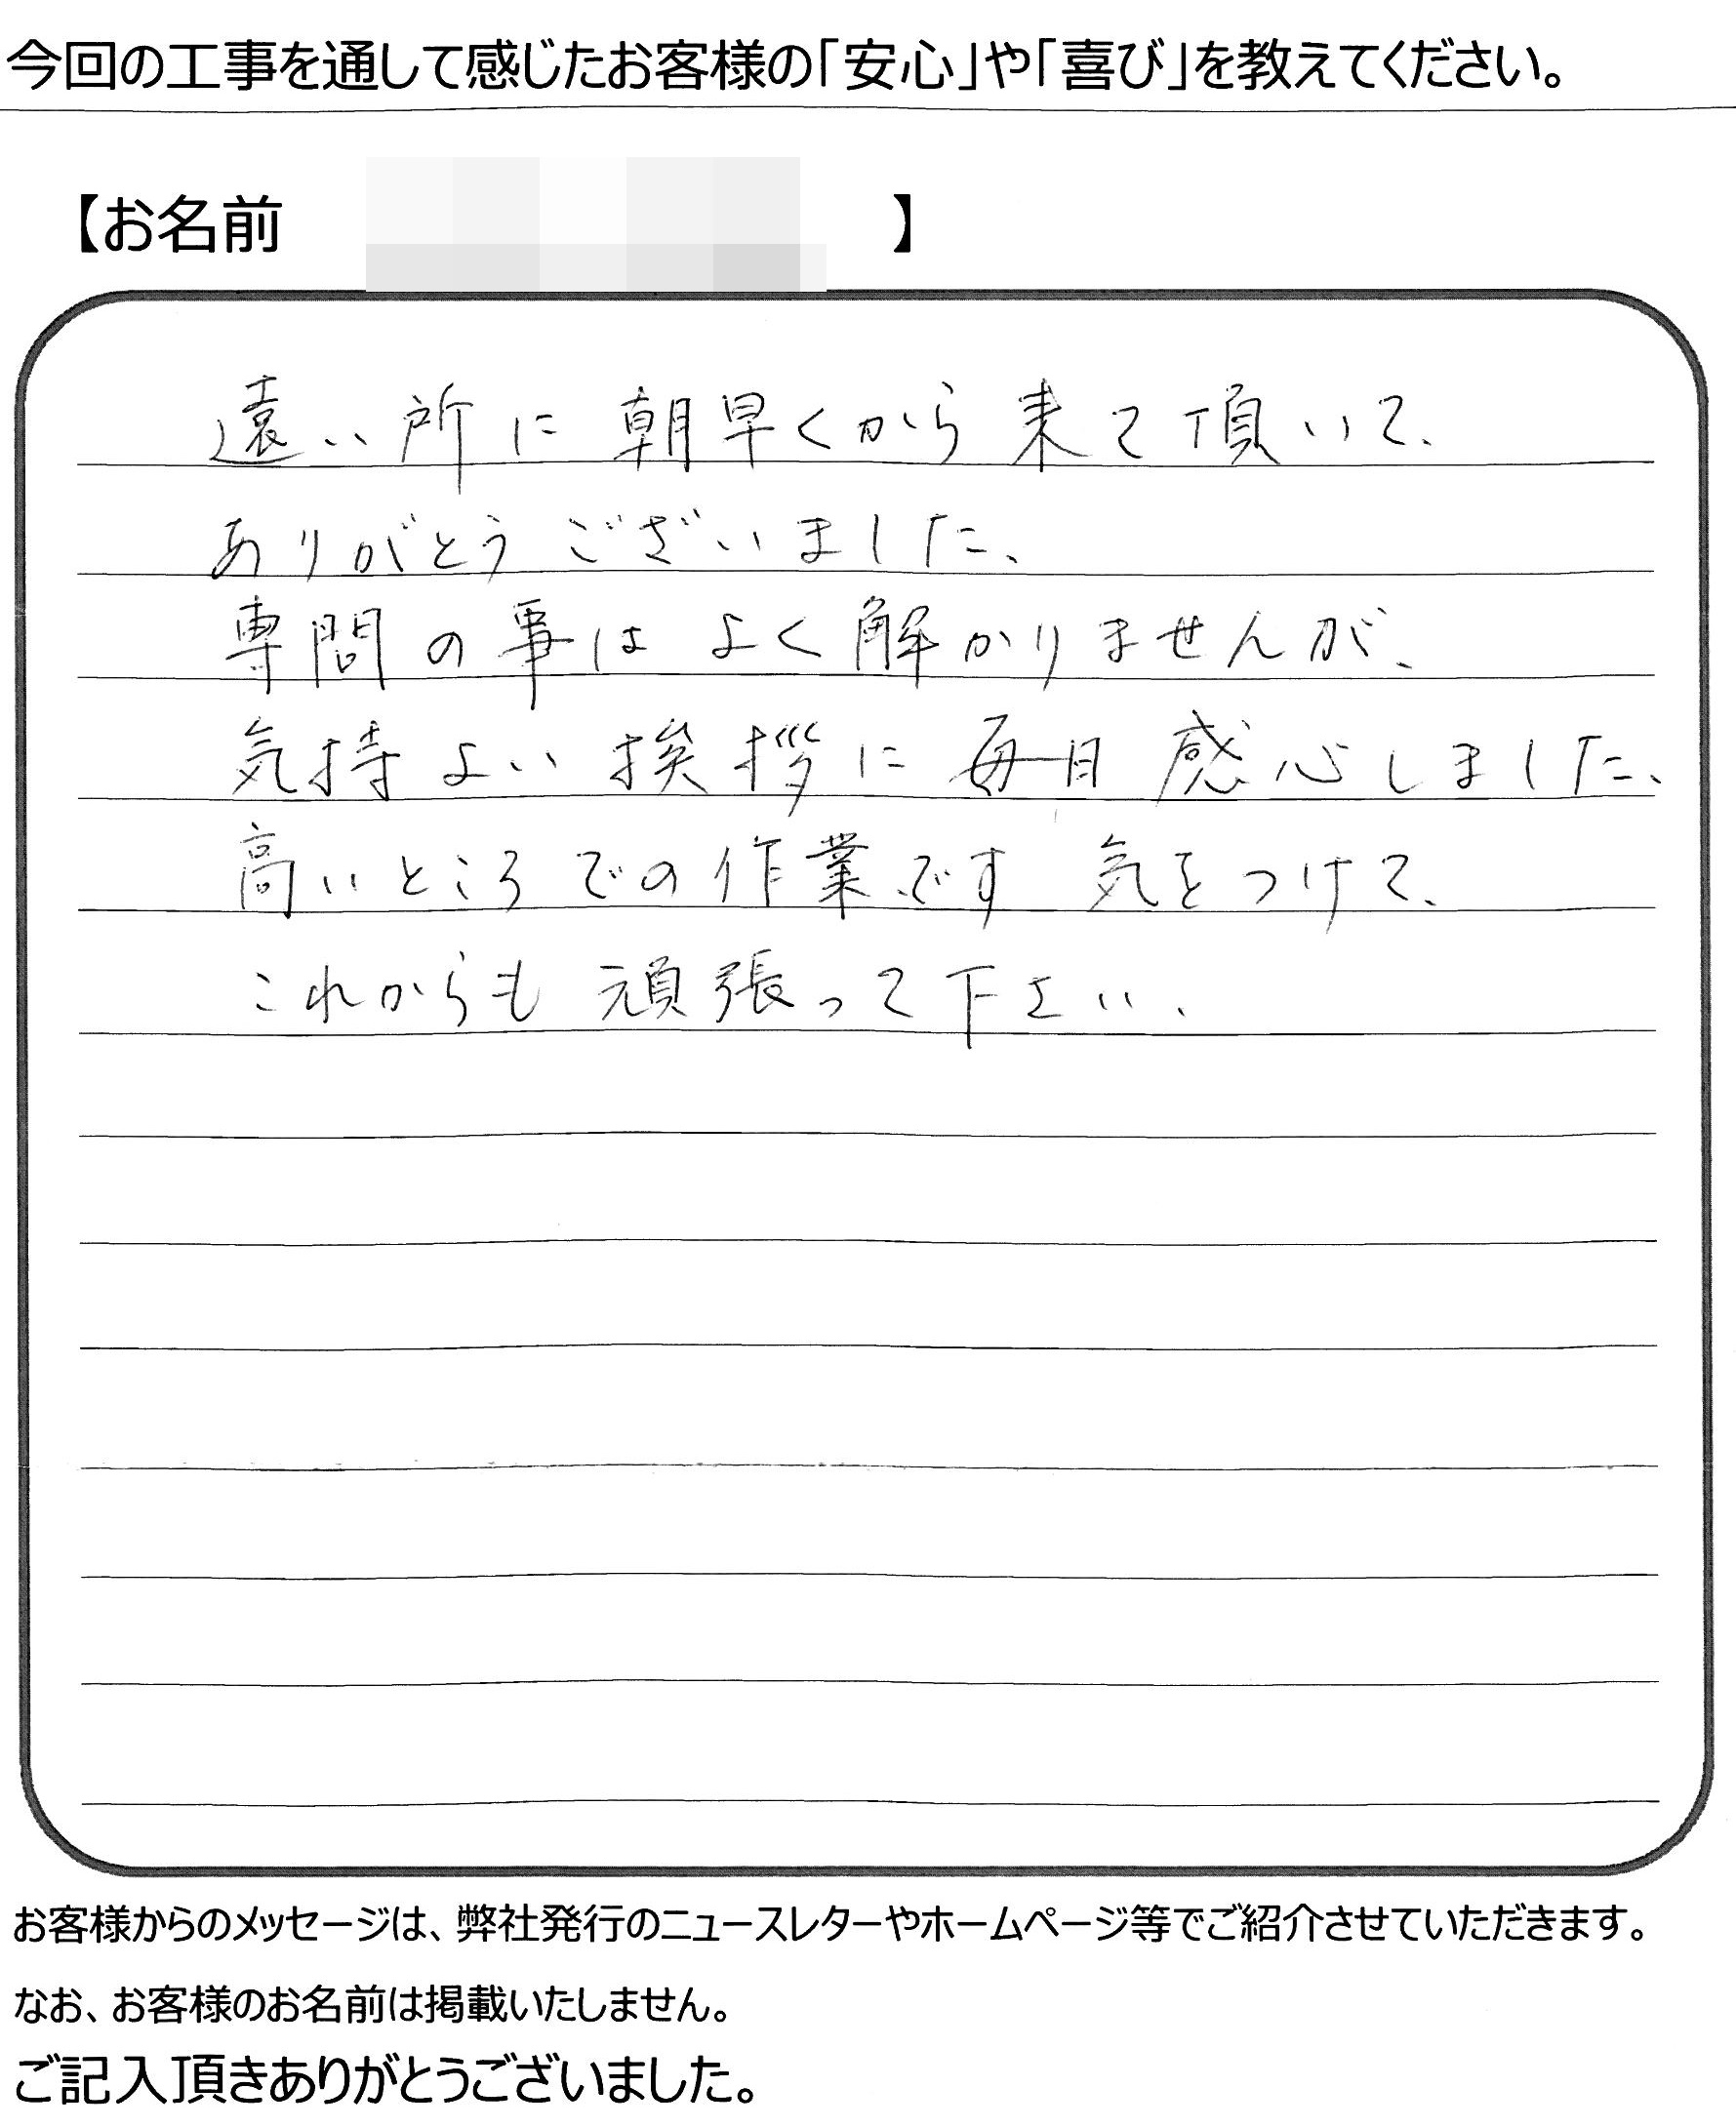 今回の工事を通して感じたお客様の「安心」や「喜び」を教えてください。
【お名前 】
遠い所に朝早くから来て頂いて、
ありがとうございました、
専問の事はよく解かりませんが、
気持よい挨拶に毎日感心しました、
高いところでの作業です 気をつけて、
これからも頑張って下さい、
お客様からのメッセージは、弊社発行のニュースレターやホームページ等でご紹介させていただきます。
なお、お客様のお名前は掲載いたしません。
ご記入頂きありがとうございました。